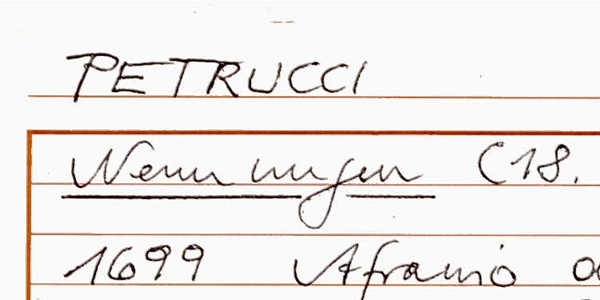 PETRUCCI
Nennungen (18.
1699 Afranio